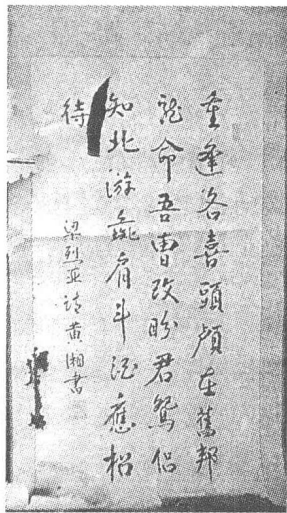 重逢各喜頭顱在舊邦
命吾曹改盼君鴛侶
知北游彘肩斗酒應相
待
梁烈亚诗黄湘書